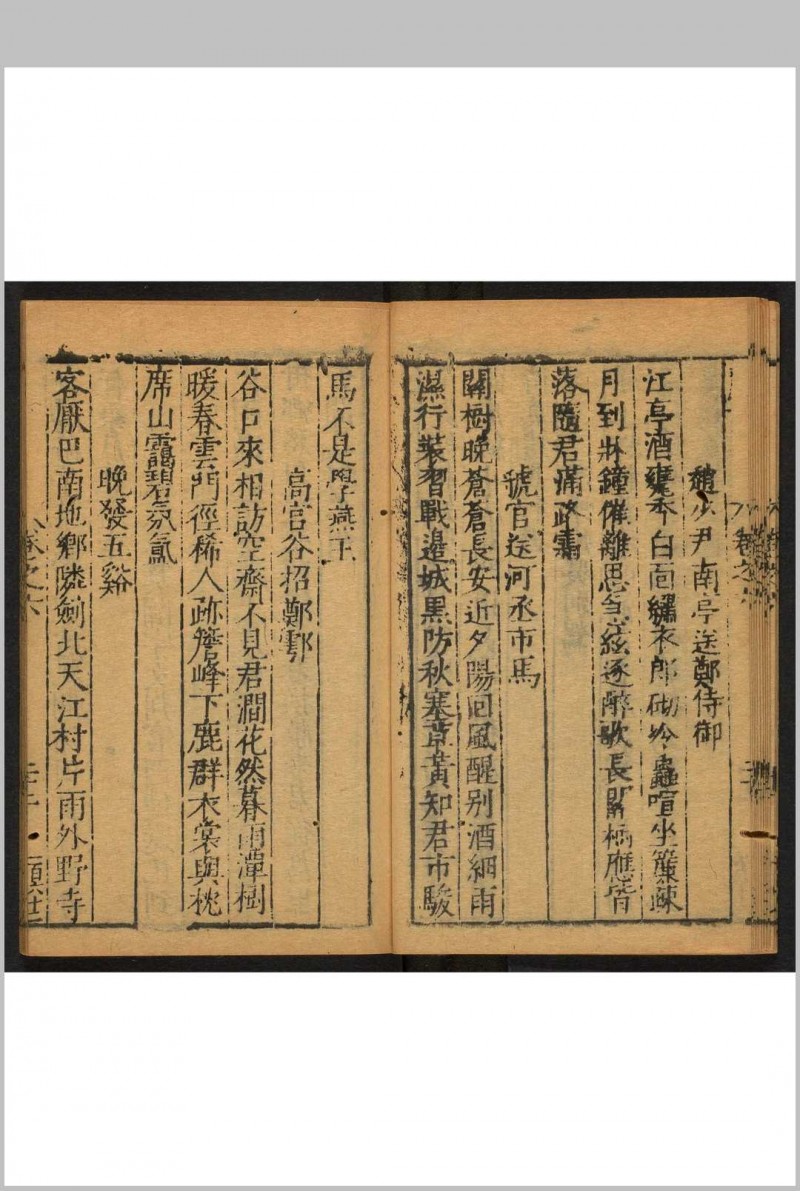 趙少尹南亭送鄭侍御
江亭酒甕香白面繡衣郎砌冷蟲喧坐簾疎
月到牀鐘催離思急絃逐醉歌長關柳應皆
落隨君滿路霜
號官送河丞市馬
關樹晚蒼蒼長安近夕陽回風醒别酒細雨
濕行裝習戰邉城黑防秋塞草黃知君市駿
馬不是學燕王
高官谷招鄭鄠
谷口來相訪空齋不見君澗花然暮雨潭樹
暖春雲門徑稀人跡簷峰下鹿群衣裳與枕
席山靄碧氛氳
晚發五谿
客厭巴南地鄉隣劍北天江村片雨外野寺
卷之六